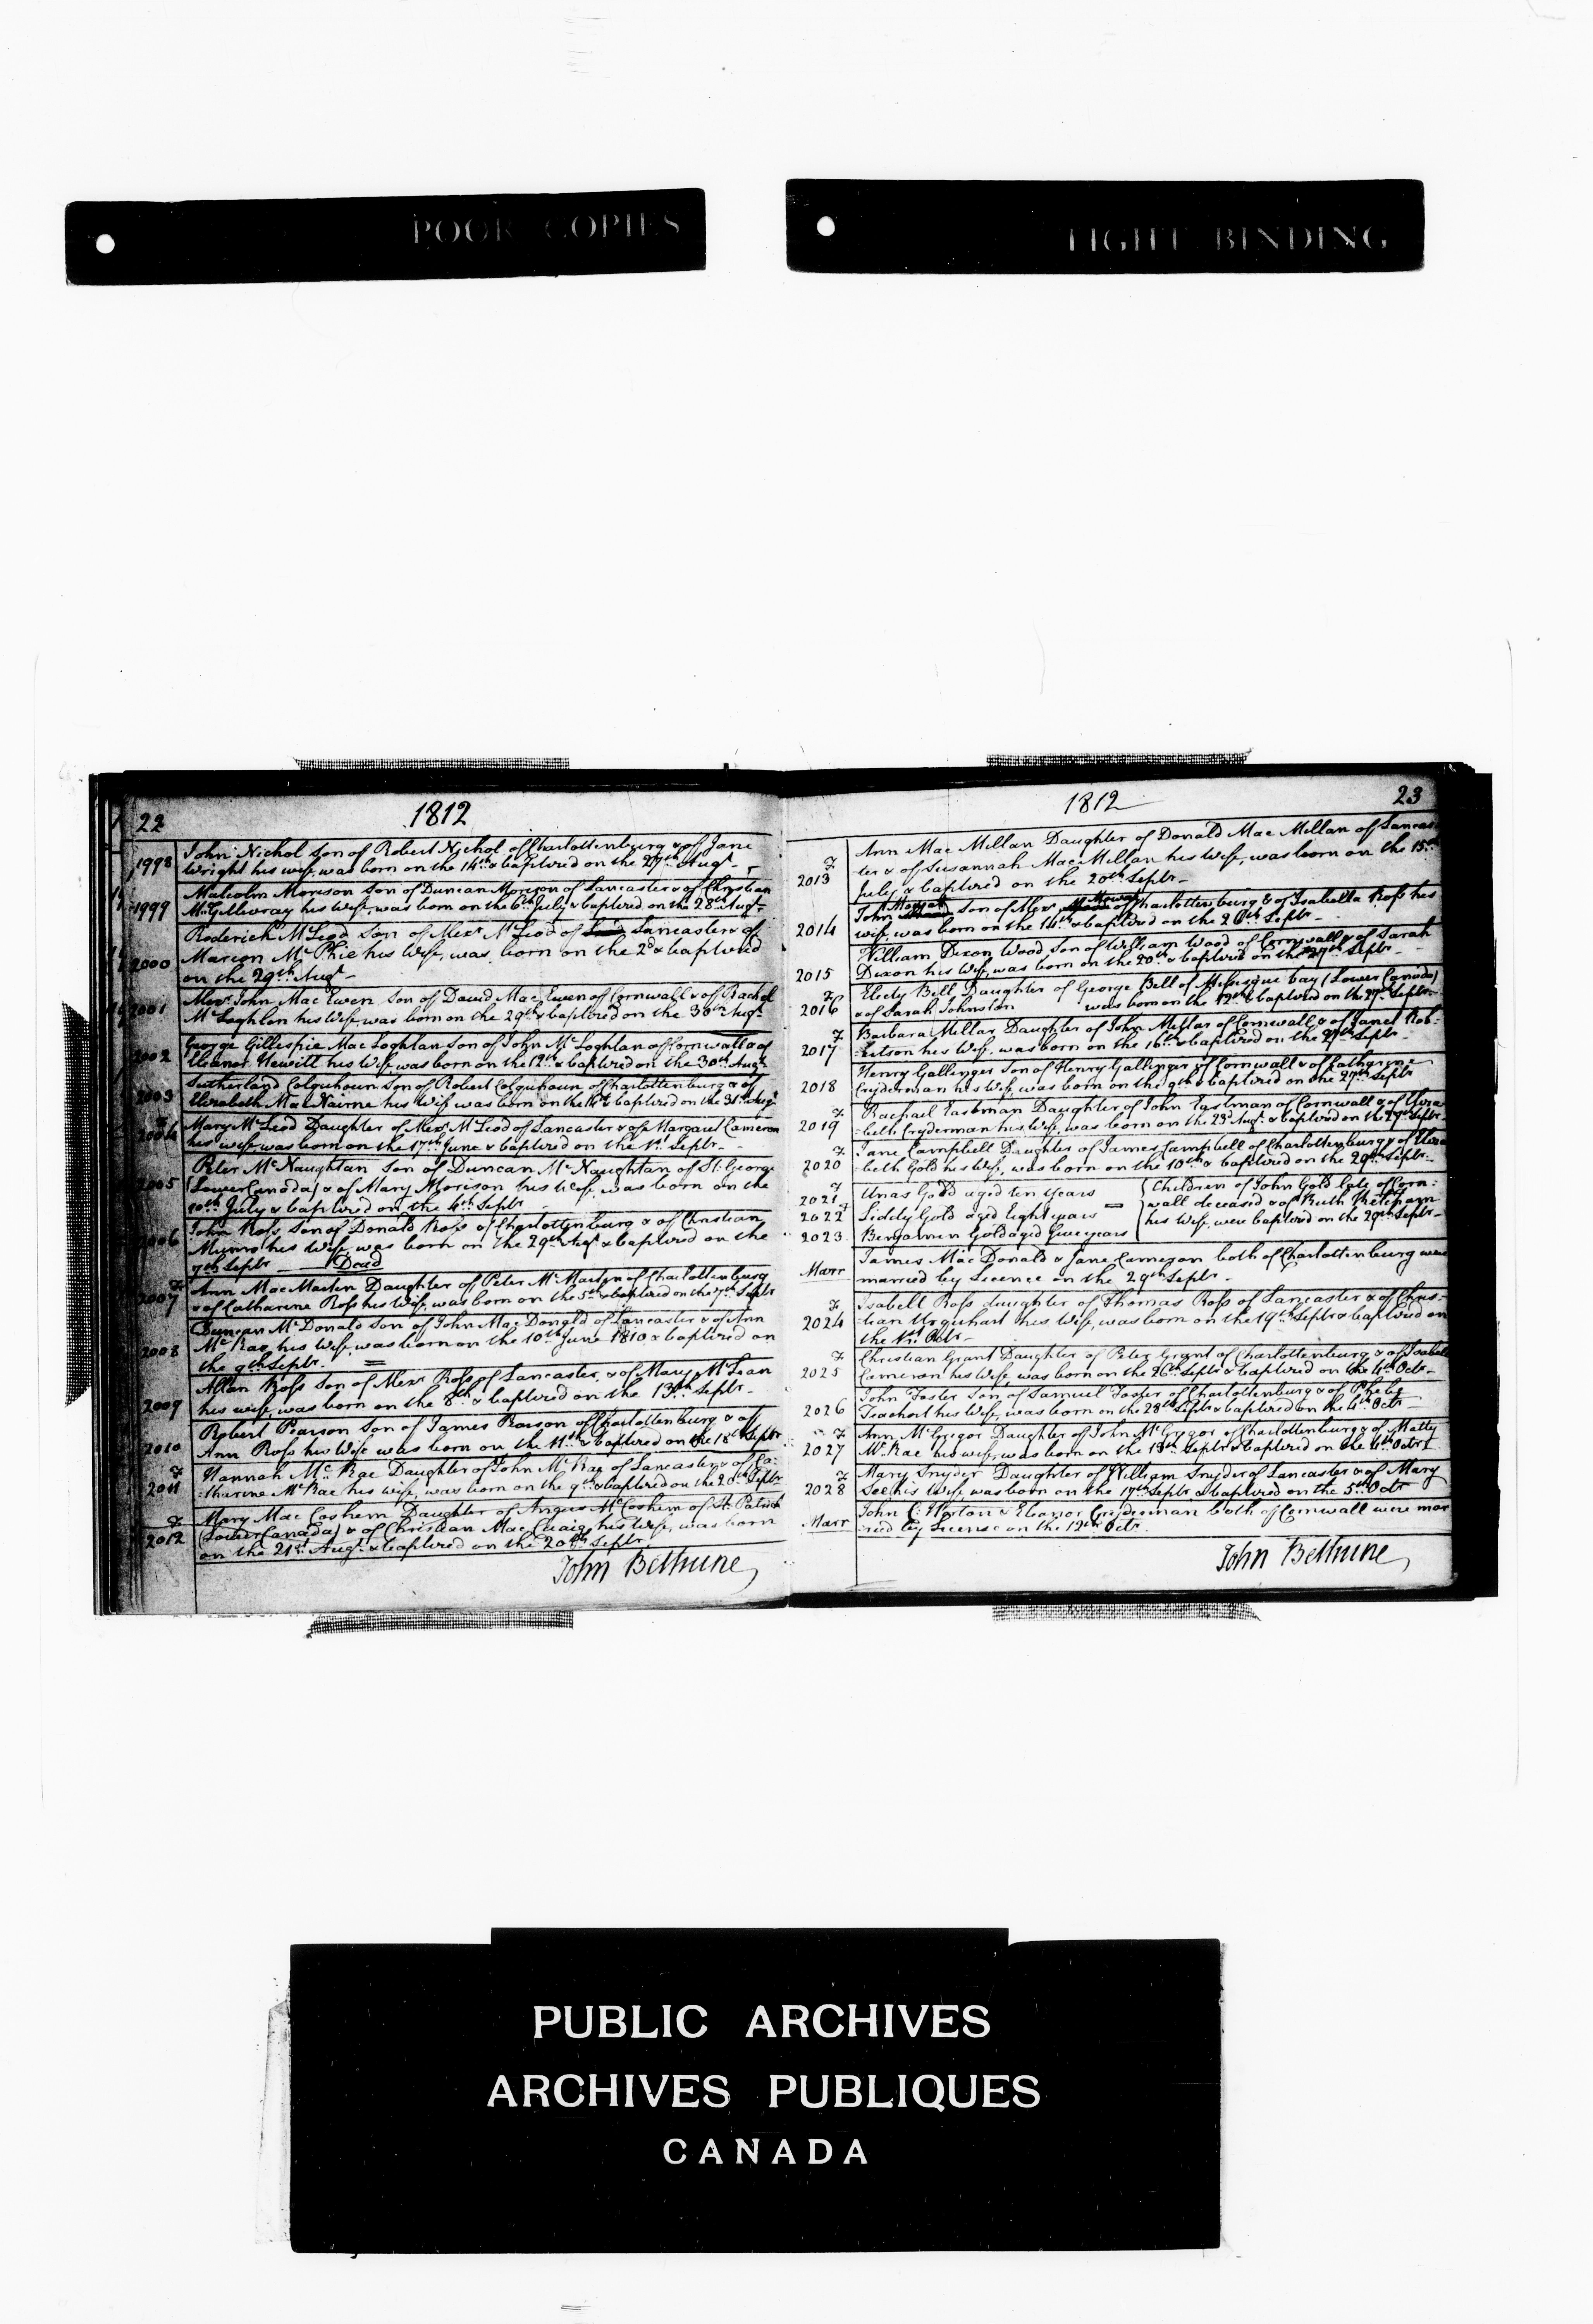 POOR COPIES
TIGHT BINDING
22
1812
1998 John Nichol Son of Robert Nichol of Charlottenburg & of Jane
Wright his wife, was born on the 14th & baptized on the 27th Augt
1999 Malcolm Morison Son of Duncan Morison of Lancaster & of Christian
McGillivray his Wife, was born on the 6th July & baptized on the 28th Augt
2000 Roderick McLeod Son of Alexr McLeod of Lancaster & of
Marion McPhie his Wife, was born on the 2d & baptized
on the 29th Augt
2001 Alexr John Mac Ewen Son of David Mac Ewen of Cornwall & of Rachel
McLoghlan his Wife, was born on the 29th & baptized on the 30th Augt
2002 George Gillespie Mac Loghlan Son of John McLoghlan of Cornwall & of
Eleanor Hewitt his Wife, was born on the 12th & baptized on the 30th Augt
2003 Sutherland Colquhoun Son of Robert Colquhoun of Charlottenburg & of
Elizabeth Mac Nairne his Wife was born on the & baptized on the 31st Augt
F
2004 Mary McLeod Daughter of Alexr McLeod of Lancaster & of Margaret Cameron
his wife, was born on the 17th June & baptized on the 1st Septr
2005 Peter McNaughtan Son of Duncan McNaughtan of St George
(Lower Canada) & of Mary Morison his Wife, was born on the
10th July & baptized on the 4th Septr
2006 John Ross Son of Donald Ross of Charlottenburg & of Christian
Munro his Wife, was born on the 29th Augt & baptized on the
7th Septr Dead
F
2007 Ann Mac Martin Daughter of Peter McMartin of Charlottenburg
& of Catharine Ross his Wife, was born on the 5th & baptized on the 7th Septr
2008 Duncan McDonald Son of John Mac Donald of Lancaster & of Ann
McRae, his Wife, was born on the 10th June 1810 & baptized on
the 9th Septr.
2009 Allan Ross Son of Alexr Ross of Lancaster, & of Mary McLean
his wife, was born on the 8th & baptized on the 13th Septr
2010 Robert Pearson Son of James Pearson of Charlottenburg & of
Ann Ross his Wife was born on the 11th & baptized on the 18th Septr
F
2011 Hannah McRae Daughter of John McRae of Lancaster & of Ca=
=tharine McRae his wife, was born on the 9th & baptized on the 20th Septr
F
2012 Mary Mac Coshem Daughter of Angus McCoshem of St. Patrick
(Lower Canada) & of Christian Mac Craig his Wife, was born
on the 21st Augt & baptized on the 20th Septr.
John Bethune
1812
23
F
2013 Ann Mac Millan Daughter of Donald Mac Millan of Lancas
ter & of Susannah Mac Millan his Wife, was born on the 15th
July & baptized on the 20th Septr
2014 John Son of Alexr of Charlottenburg & of Isabella Ross his
wife, was born on the 14th & baptized on the 20th Septr
2015 William Dixon Wood Son of William Wood of Cornwall & of Sarah
Dixon his Wife, was born on the 20th & baptized on the 27th Septr
F
2016 Electy Bell Daughter of George Bell of bay (Lower Canada)
& of Sarah Johnston was born on the 12th & baptized on the 27th Septr
F
2017 Barbara Millar Daughter of John Millar of Cornwall & of Janet Rob=
=ertson his Wife, was born on the 16th & baptized on the 27th Septr
2018 Henry Gallinger Son of Henry Gallinger of Cornwall & of Catharine
Cryderman his Wife, was born on the 9th & baptized on the 27th Septr
F
2019 Rachael Eastman Daughter of John Eastman of Cornwall & of Eliza
=beth Cryderman his Wife, was born on the 23d Augt & baptized on the 27th Septr
F
2020 Jane Campbell Daughter of James Campbell of Charlottenburg & of Eliza
=beth Gold his Wife, was born on the 10th & baptized on the 29th Septr
F
2021 Unas Gold aged ten Years
2022 Liddy Gold aged Eight years
2023 Benjamin Gold aged five years
Children of John Gold late of Corn=
wall deceased & of Ruth
his Wife, were baptized on the 29th Septr
Marr James Mac Donald & Jane both of Charlottenburg were
married by Licence on the 29th Septr
F
2024 Isabell Ross daughter of Thomas Ross of Lancaster & of Chris=
tian Urquhart his Wife, was born on the 19th Septr & baptized on
the 1st Octr
F
2025 Christian Grant Daughter of Peter Grant of Charlottenburg & of Isabell
Cameron his Wife was born on the 26th Septr & baptized on the 4th Octr
2026 John Foster Son of Samuel Foster of Charlottenburg & of Phebe
his Wife, was born on the 28th Septr & baptized on the 4th Octr
F
2027 Ann McGregor Daughter of John McGregor of Charlottenburg & of Matty
McRae his wife, was born on the 13th Septr & baptized on the 4th Octr
F
2028 Mary Snyder Daughter of William Snyder of Lancaster & of Mary
See his Wife, was born on the 17th Septr & baptized on the 5th Octr
Marr John C. Horton & Eleanor Cryderman both of Cornwall were mar
ried by Licence on the 12th Octr.
John Bethune
PUBLIC ARCHIVES
ARCHIVES PUBLIQUES
CANADA